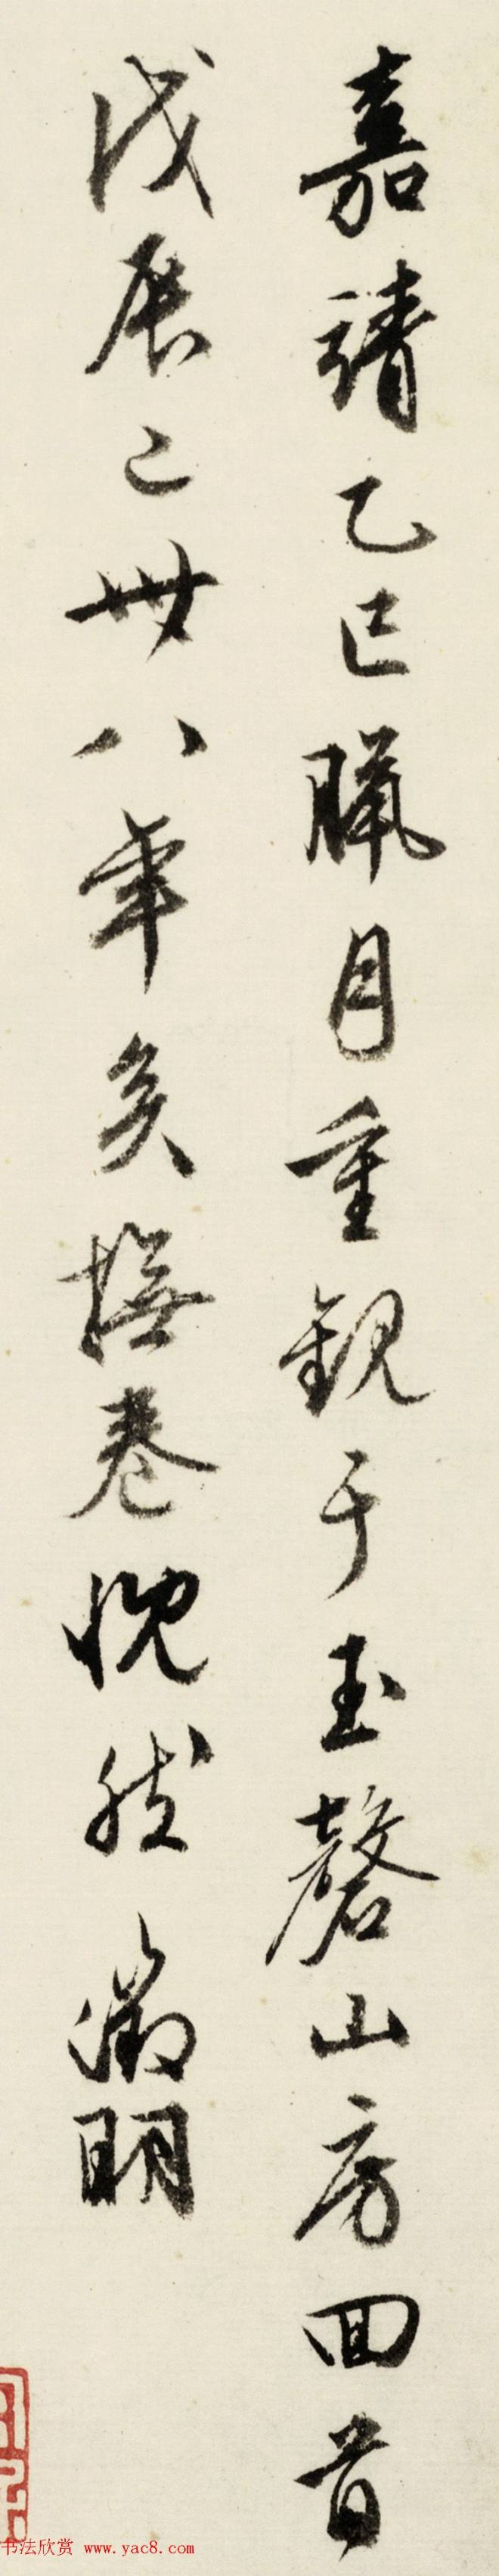 嘉靖乙巳臘月重觀于玉磬山房回首
戊辰已卅八年矣撫卷悅然徵明
书法欣赏 www.yac8.com